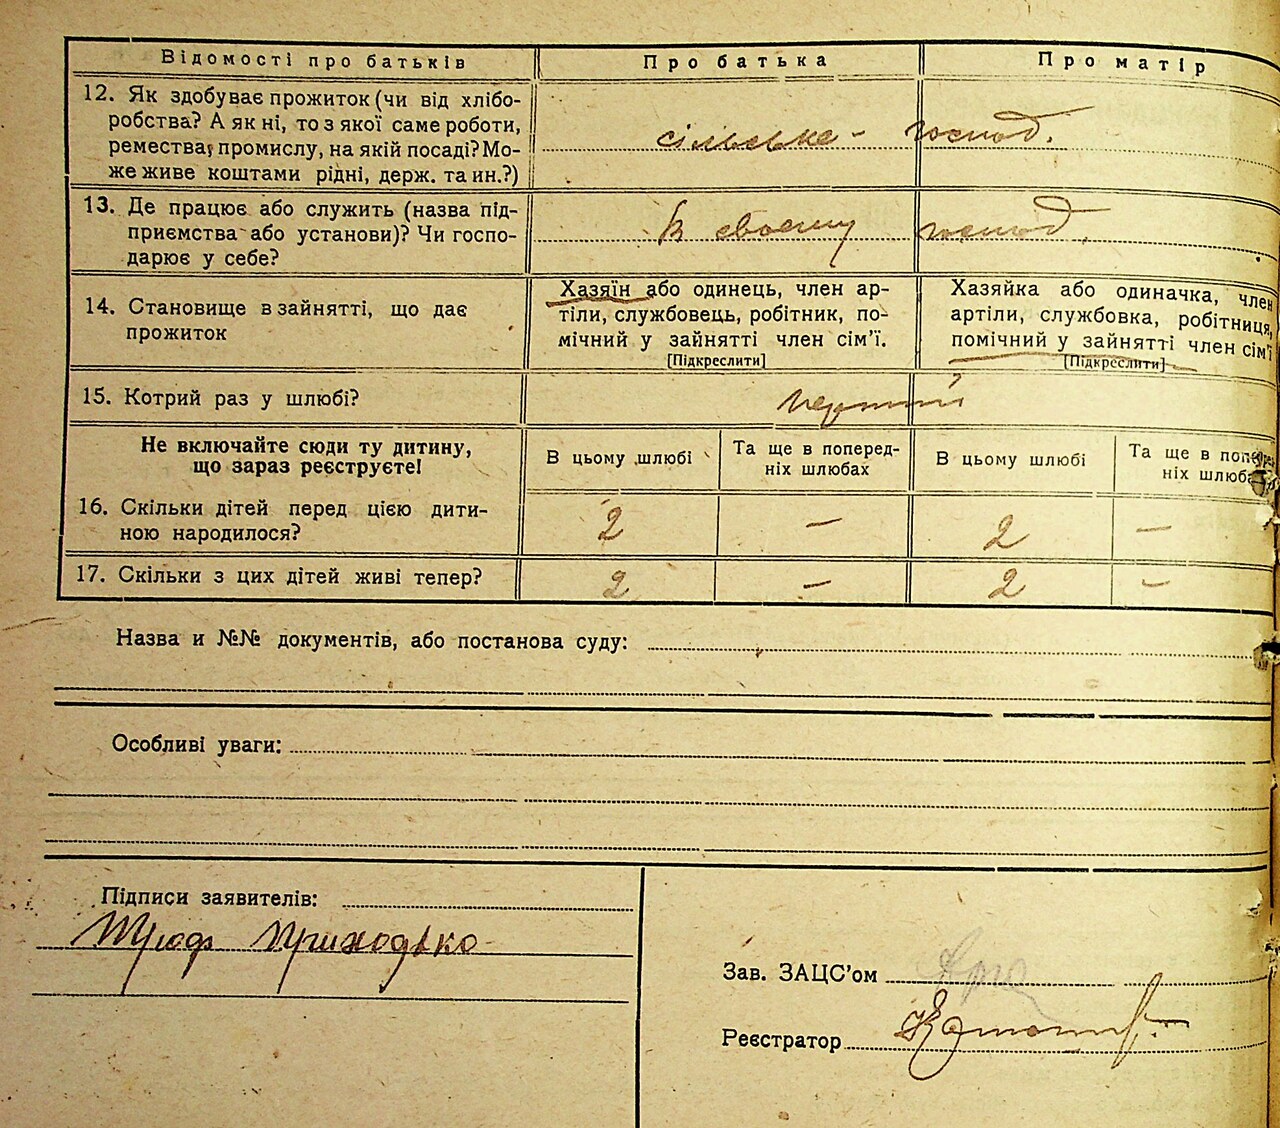 Відомості про батьків Про батька Про матір
12. Як здобуває прожиток (чи від хлібо-
робства? А як ні, то з якої саме роботи,
ремества, промислу, на якій посаді? Мо-
же живе коштами рідні, держ. та ин.?)
сільське - господ.
13. Де працює або служить (назва під-
приємства або установи)? Чи госпо-
дарює у себе?
В своєму господ.
14. Становище в зайнятті, що дає
прожиток
Хазяїн або одинець, член ар-
тіли, службовець, робітник, по-
мічний у зайнятті член сім'ї.
[Підкреслити]
Хазяйка або одиначка, член
артіли, службовка, робітниця,
помічний у зайнятті член сім'ї
[Підкреслити]
15. Котрий раз у шлюбі?
перший
Не включайте сюди ту дитину,
що зараз реєструєте!
В цьому шлюбі
Та ще в поперед-
ніх шлюбах
В цьому шлюбі
Та ще в поперед-
ніх шлюбах
16. Скільки дітей перед цією дити-
ною народилося?
2 – 2 –
17. Скільки з цих дітей живі тепер?
2 – 2 –
Назва и №№ документів, або постанова суду:
Особливі уваги:
Підписи заявителів:
Троф Приходько
Зав. ЗАЦС'ом
Реєстратор